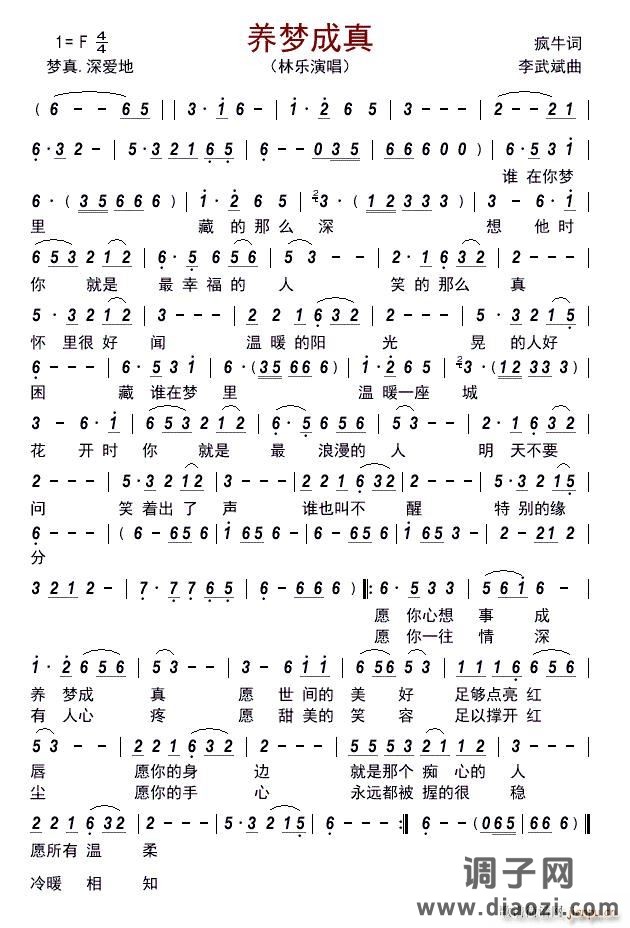 养梦成真
1= F 4/4
疯牛词
梦真.深爱地
（林乐演唱）
李武斌曲
( 6 - - 6 5 | 3 · 1 6 - | 1 · 2 6 5 | 3 - - - | 2 - - 2 1 |
6 · 3 2 - | 5 · 3 2 1 6 5 | 6 - - 0 3 5 | 6 6 6 0 0 ) | 6 · 5 3 1 |
谁 在你梦
6 · ( 3 5 6 6 6 ) | 1 · 2 6 5 | 3 · ( 1 2 3 3 3 ) | 3 - 6 · 1 |
里 藏 的 那 么 深 想 他 时
6 5 3 2 1 2 | 6 · 5 6 5 6 | 5 3 - - | 2 · 1 6 3 2 | 2 - - - |
你 就是 最 幸 福 的 人 笑 的 那么 真
5 · 3 2 1 2 | 3 - - - | 2 2 1 6 3 2 | 2 - - - | 5 · 3 2 1 5 |
怀 里很 好 闻 温 暖 的阳 光 晃 的人好
6 - - - | 6 · 5 3 1 | 6 · ( 3 5 6 6 6 ) | 1 · 2 6 5 | 3 · ( 1 2 3 3 3 ) |
困 藏 谁在梦 里 温 暖一座 城
3 - 6 · 1 | 6 5 3 2 1 2 | 6 · 5 6 5 6 | 5 3 - - | 2 · 1 6 3 2 |
花 开 时 你 就是 最 浪漫的 人 明 天不要
2 - - - | 5 · 3 2 1 2 | 3 - - - | 2 2 1 6 3 2 | 2 - - - | 5 · 3 2 1 5 |
问 笑 着出 了 声 谁也叫不 醒 特 别的缘
6 - - - | ( 6 - 6 5 6 | 1 6 5 6 5 1 | 6 5 6 · 5 6 | 2 - 2 1 2 |
分
3 2 1 2 - | 7 · 7 7 6 5 | 6 - 6 6 6 ) ‖: 6 · 5 3 3 | 5 6 1 6 - |
愿 你心想 事 成
愿 你一往 情 深
1 · 2 6 5 6 | 5 3 - - | 3 - 6 1 1 | 6 5 6 5 3 | 1 1 1 6 6 5 6 |
养 梦成 真 愿 世 间的 美 好 足够点亮 红
有 人心 疼 愿 甜 美的 笑 容 足以撑开 红
5 3 - - | 2 2 1 6 3 2 | 2 - - - | 5 5 5 3 2 1 1 2 | 5 3 - - |
唇 愿你的身 边 就是那个 痴 心的 人
尘 愿你的手 心 永远都被 握的很 稳
2 2 1 6 3 2 | 2 - - - | 5 · 3 2 1 5 | 6 - - - :‖ 6 - - ( 0 6 5 | 6 6 6 6 ) ‖
愿所有 温 柔
冷暖 相 知
调子网
www.diaozi.com